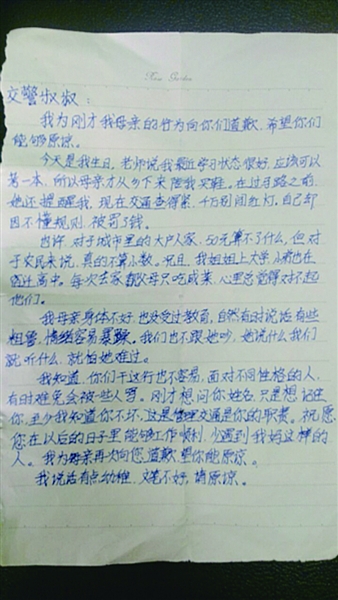 交警叔叔:
我为刚才我母亲的行为向你们道歉,希望你们
能够原谅。
今天是我生日,老师说我最近学习状态很好,应该可以
第一本,所以母亲才从乡下来陪我买鞋。在过马路之前,
她还提醒我,现在交通查得紧,千万别闯红灯,自己却
因不懂规则,被罚了钱。
也许,对于城市里的大户人家,50元算不了什么,但对
于农民来说,真的不算小数。况且,我姐姐上大学,小弟也在
念高中。每次去家看父母只吃咸菜,心里总觉得对不起
他们。
我母亲身体不好,也没受过教育,自然有时说话有些
粗鲁,情绪容易暴躁。我们也不跟她吵,她说什么我们
就听什么,就怕她难过。
我知道,你们干这行也不容易,面对不同性格的人,
有时难免会被些人骂。刚才想问你姓名,只是想记住
你,至少我知道你不坏,这是管理交通是你的职责。祝愿
您在以后的日子里能够工作顺利,少遇到我妈这样的
人。我为母亲再次向您道歉,望你能原谅。
我说话有点幼稚,文笔不好,请原谅。